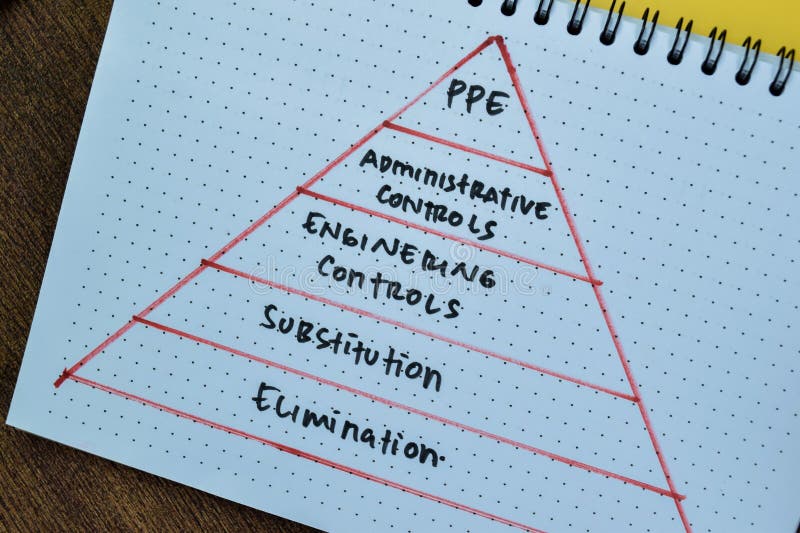 PPE
ADMINISTRATIVE
CONTROLS
ENGINEERING
CONTROLS
SUBSTITUTION
ELIMINATION
dreamstime